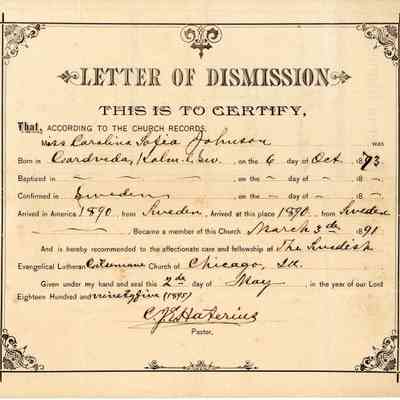 LETTER OF DISMISSION
THIS IS TO CERTIFY,
That, ACCORDING TO THE CHURCH RECORDS,
Miss Carolina Sofia Johnson was
Born in Gardveda, Kalm. L. Sw. on the 6 day of Oct. 1873
Baptized in — on the — day of — 18
Confirmed in Sweden on the — day of — 18
Arrived in America 1890 from Sweden. Arrived at this place 1890 from Sweden
Became a member of this Church March 3rd 1891
And is hereby recommended to the affectionate care and fellowship of The Swedish
Evangelical Lutheran Church of Chicago, Ill.
Given under my hand and seal this 2nd day of May in the year of our Lord
Eighteen Hundred and ninety five (1895)
Pastor.